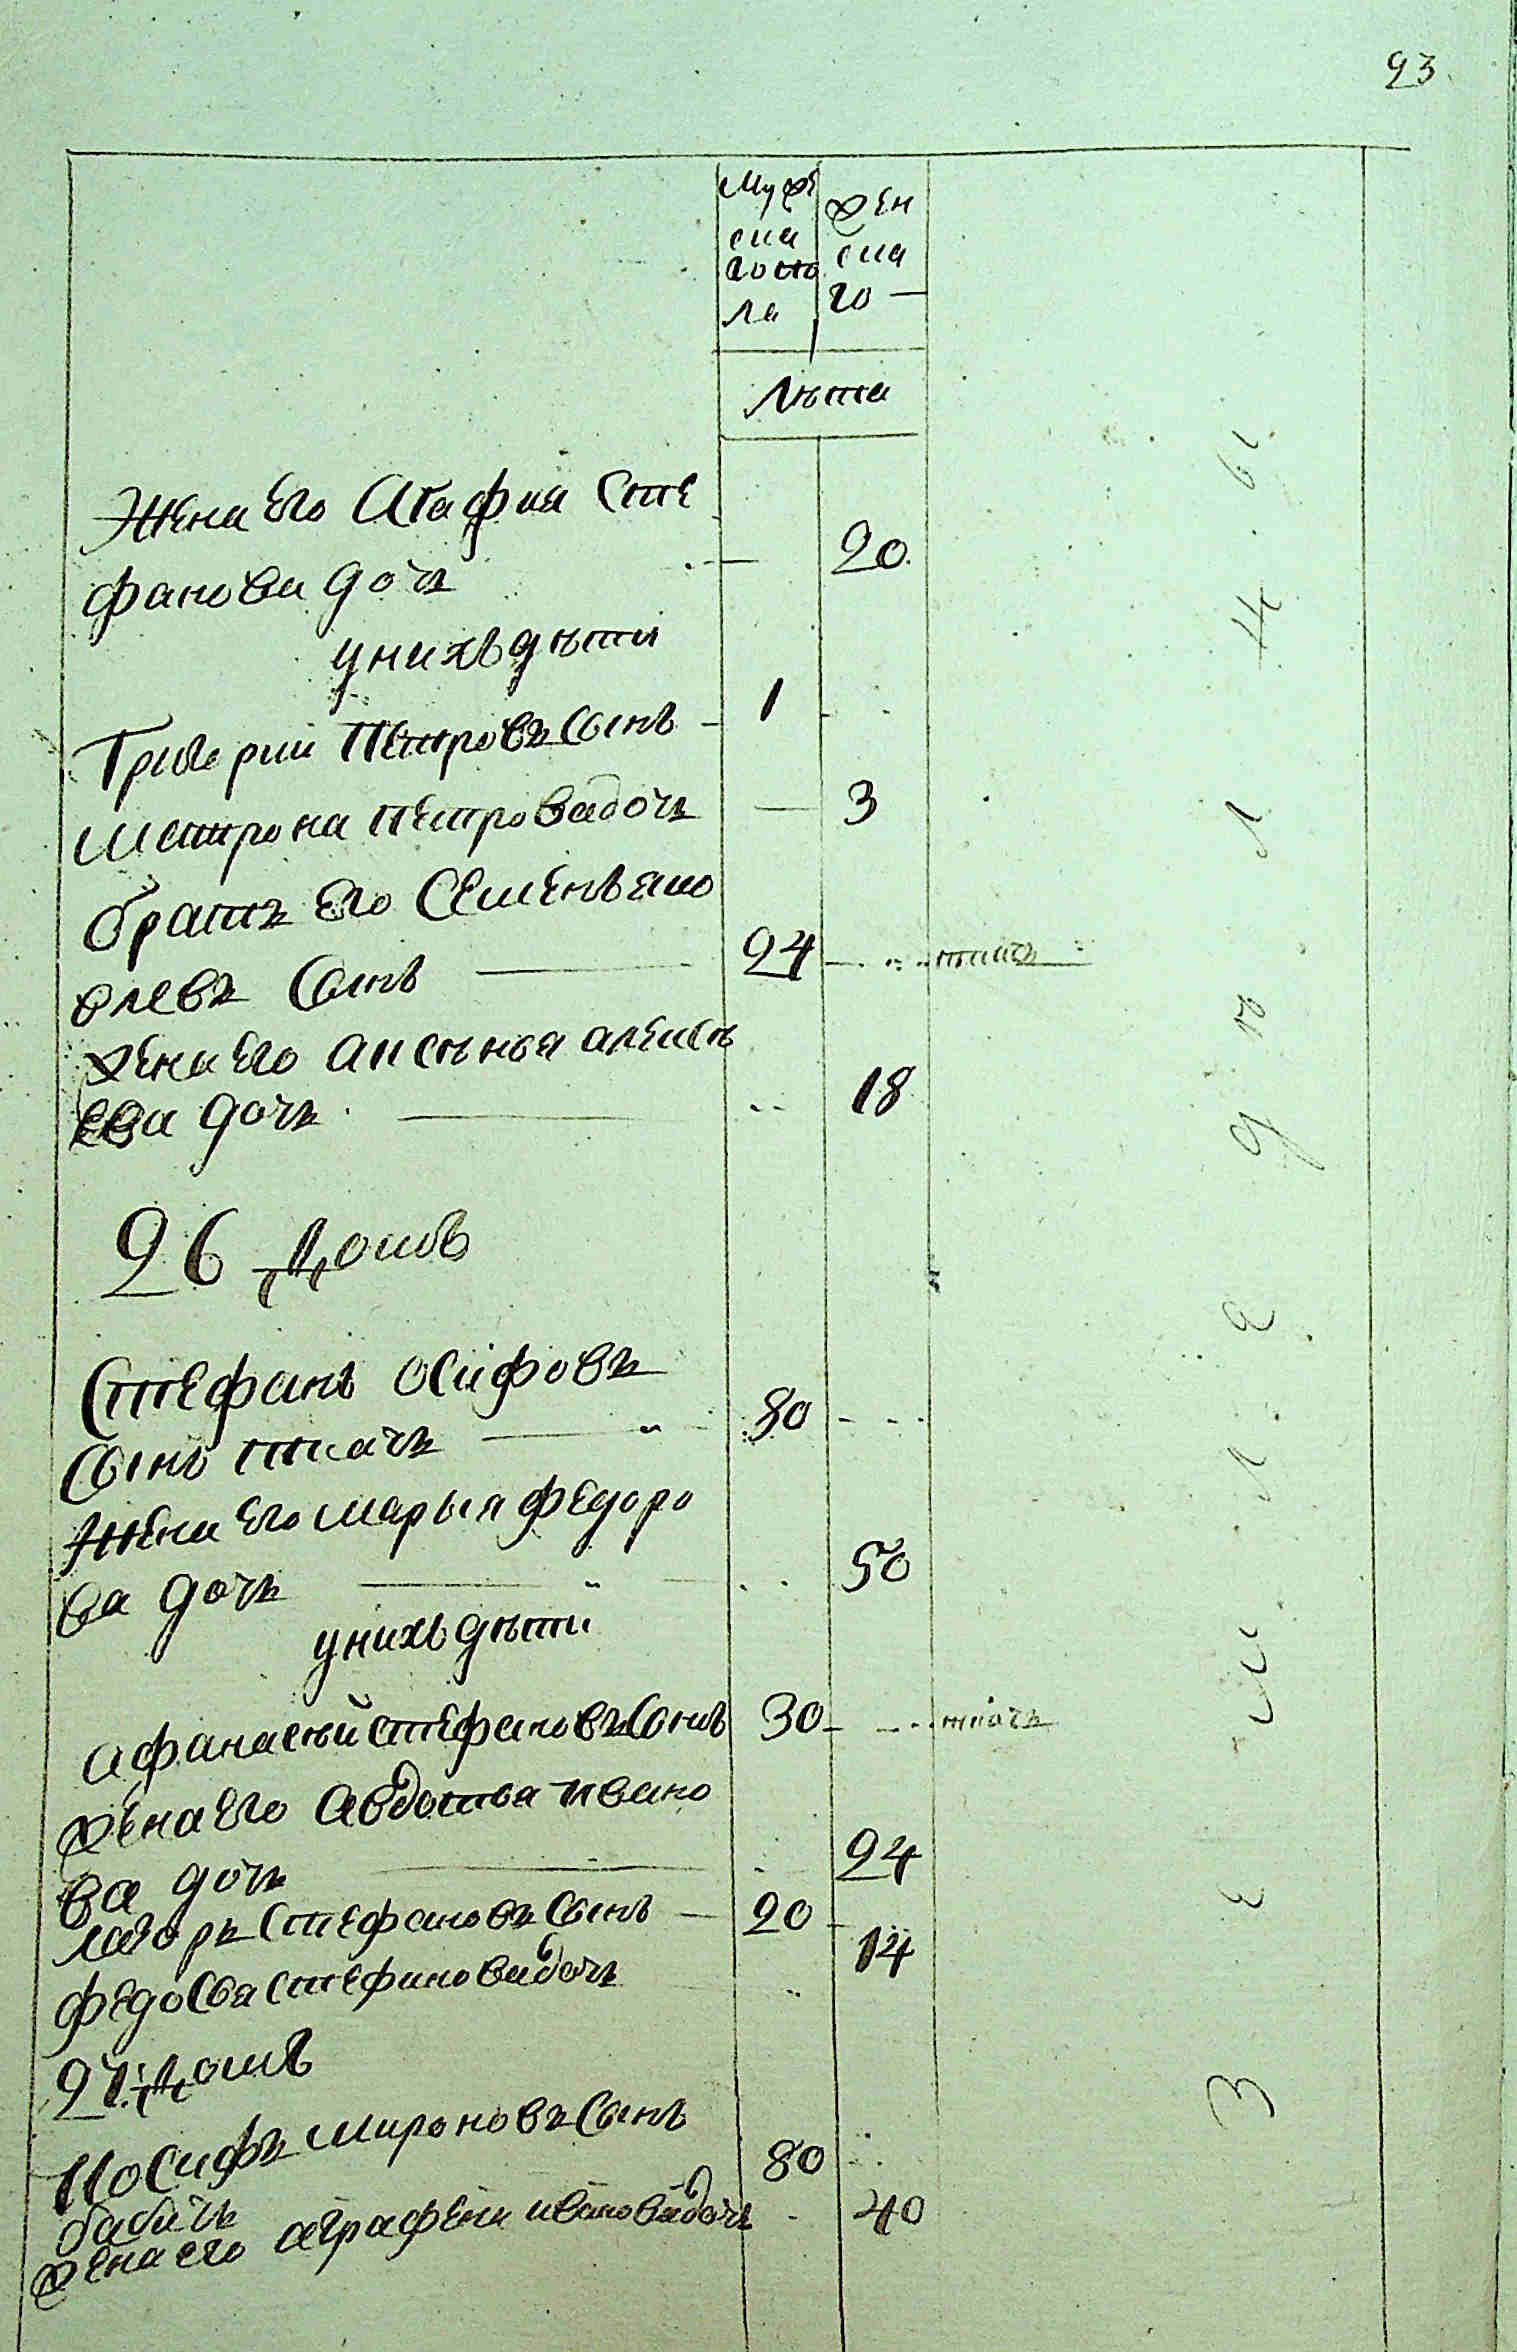 93
Муже
ска
гопо
ла
жен
ска
го —
Лѣта
Жена его Агафиа Сте
фанова дочь — 20
у нихъ дѣти
Григорий Петровъ сынъ — 1
Матрона Петрова дочь — 3
братъ его Семенъ яко
влевъ сынъ — 24 ткачь
жена его Аксѣнья алексѣ
ева дочь — 18
26 Домъ
Стефанъ осифовъ
сынъ ткачь — 80
Жена его марья федоро
ва дочь — 50
у нихъ дѣти
афанасѣй стефановъ сынъ 30 ткачь
жена его авдотья ивано
ва дочь — 24
лазоръ Стефановъ сынъ — 20
федосья стефанова дочь 14
27 Домъ
Иосифъ мироновъ сынъ
бабичь 80
жена его аграфена иванова дочь 40
Земледѣлцы